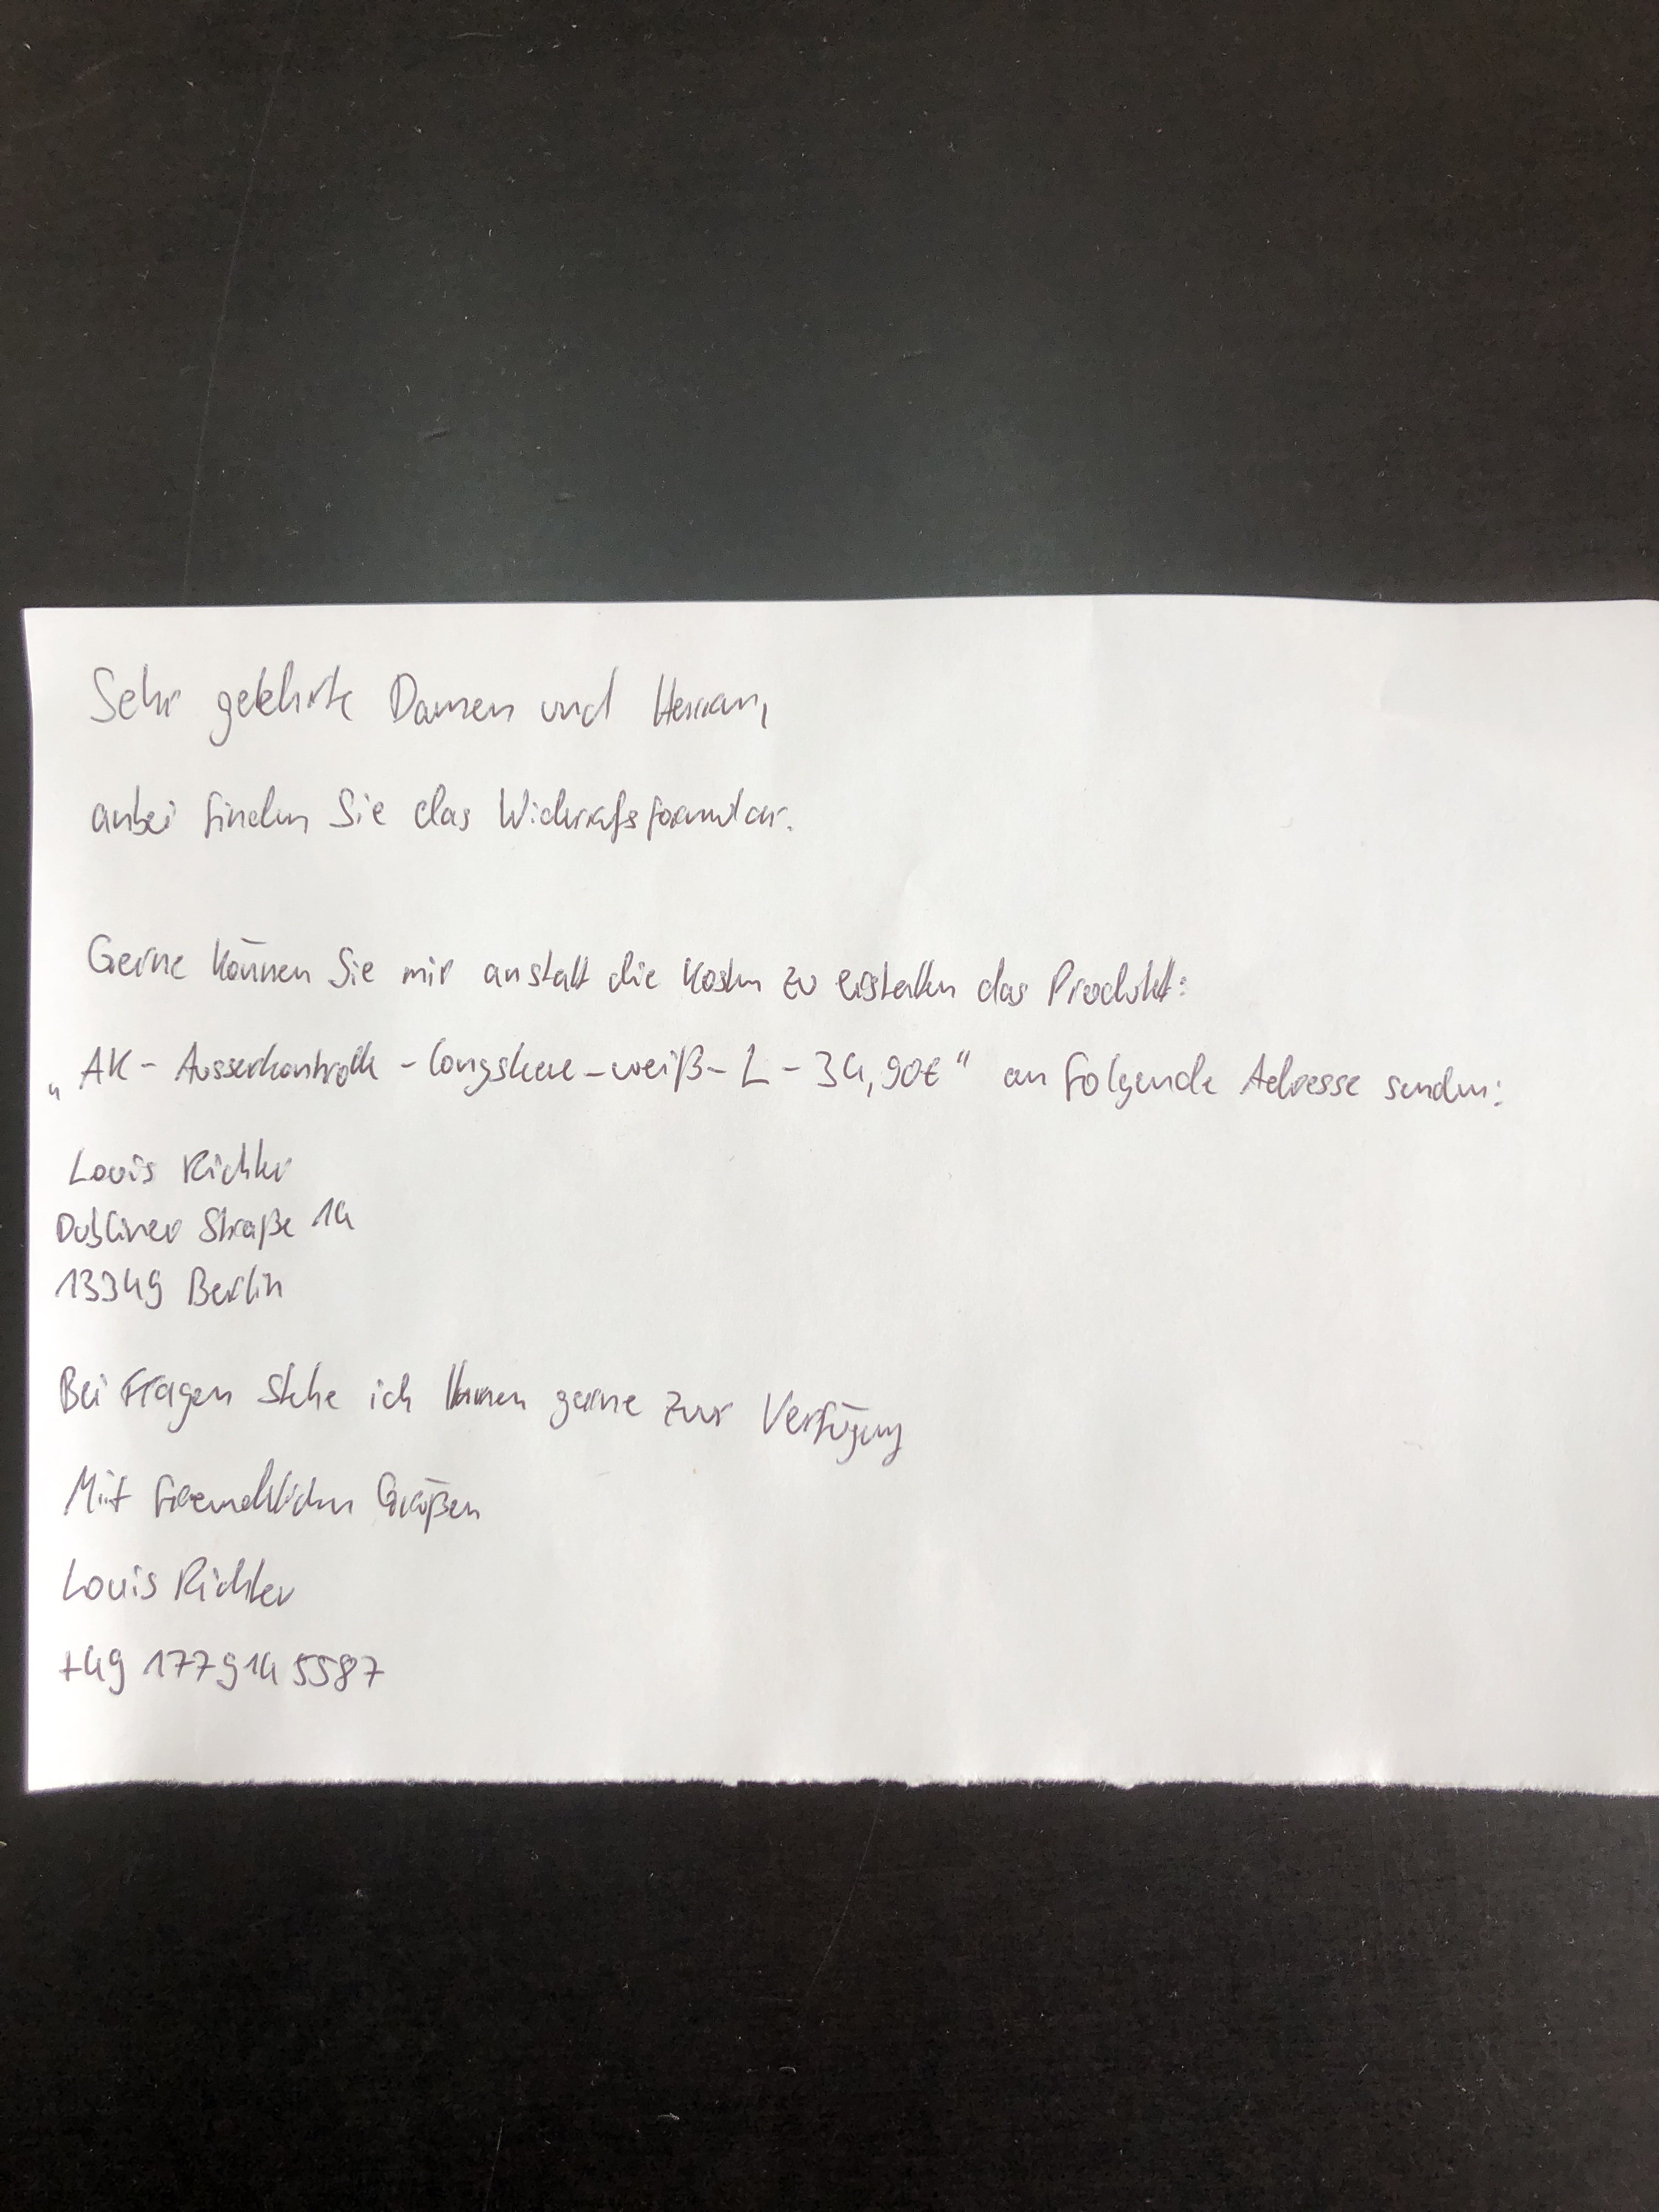 Sehr geehrte Damen und Herren,
anbei finden Sie das Widerrufsformular.
Gerne können Sie mir anstatt die Kosten zu erstatten das Produkt:
„AK - Ausserkontrolle - longsleeve - weiß - L - 34,90€" an folgende Adresse senden:
Louis Richter
Dubliner Straße 14
13349 Berlin
Bei Fragen stehe ich Ihnen gerne zur Verfügung
Mit freundlichen Grüßen
Louis Richter
+49 177 914 5587